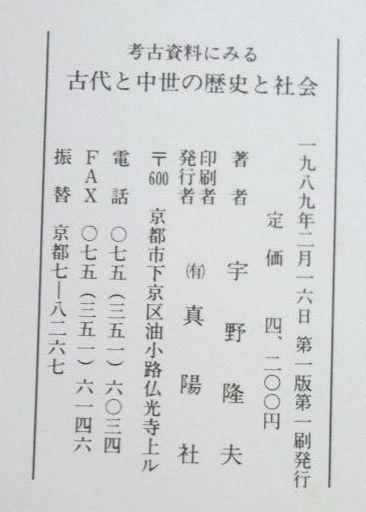 考古資料にみる
古代と中世の歴史と社会
一九八九年二月一六日 第一版第一刷発行
定価 四、二〇〇円
著者 宇野隆夫
印刷者
発行者 ㈲真陽社
〒600 京都市下京区油小路仏光寺上ル
電話 〇七五(三五一)六〇三四
FAX 〇七五(三五一)六一四六
振替 京都七―八二六七